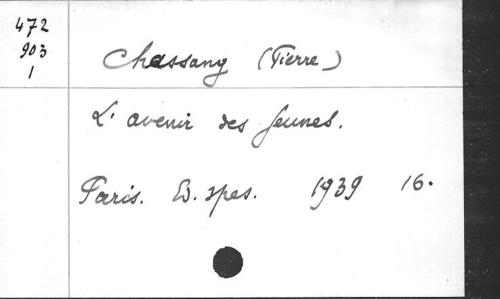 472
903
1
Chassang (Pierre)
L'avenir des Jeunes.
Paris. Ed. Spes. 1939 16.